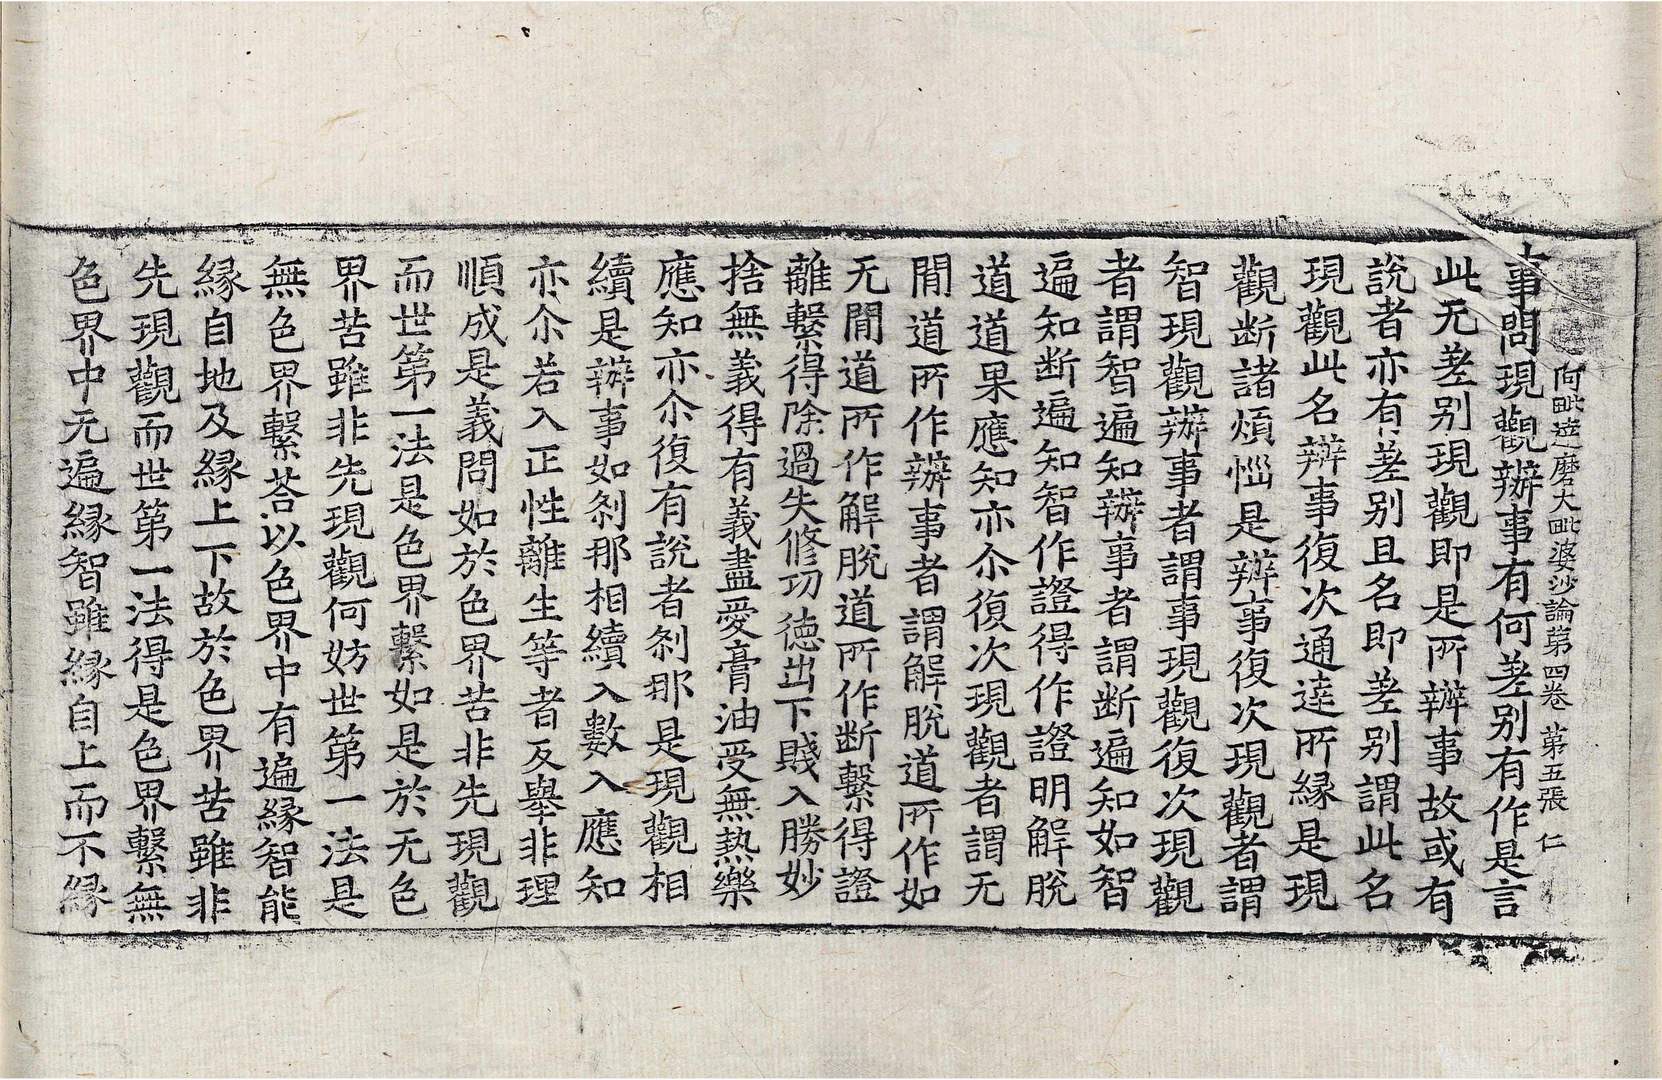 阿毗達磨大毗婆沙論第四卷 第五張 仁
事問現觀辦事有何差别有作是言
此无差别現觀即是所辦事故或有
說者亦有差别且名即差别謂此名
現觀此名辦事復次通達所緣是現
觀断諸煩惱是辦事復次現觀者謂
智現觀辦事者謂事現觀復次現觀
者謂智遍知辦事者謂断遍知如智
遍知断遍知智作證得作證明解脫
道道果應知亦尒復次現觀者謂无
閒道所作辦事者謂解脫道所作如
无閒道所作解脫道所作断繫得證
離繫得除過失修功德出下賤入勝妙
捨無義得有義盡愛膏油受無熱樂
應知亦尒復有說者刹那是現觀相
續是辦事如刹那相續入數入應知
亦尒若入正性離生等者反舉非理
順成是義問如於色界苦非先現觀
而世第一法是色界繫如是於无色
界苦雖非先現觀何妨世第一法是
無色界繫荅以色界中有遍緣智能
緣自地及緣上下故於色界苦雖非
先現觀而世第一法得是色界繫無
色界中无遍緣智雖緣自上而不緣